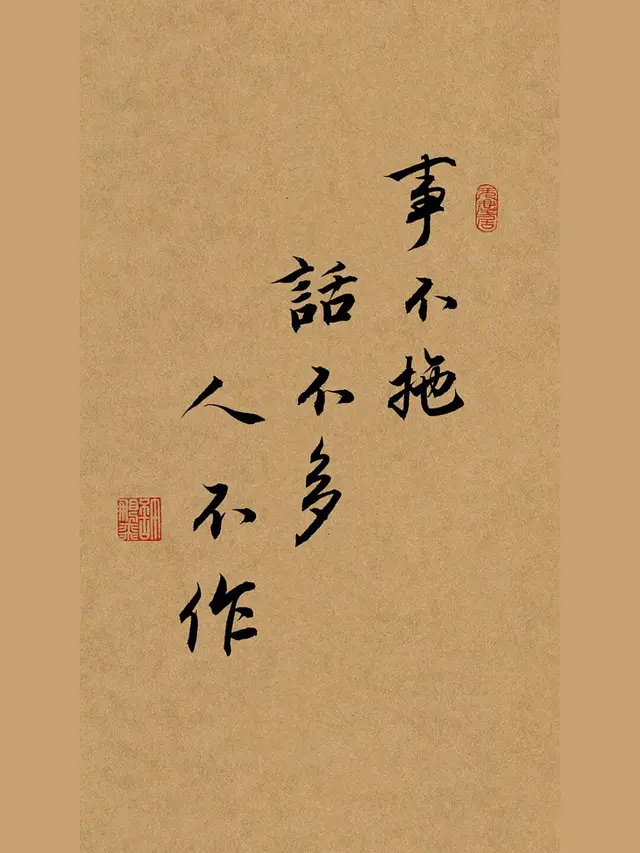 事不拖
話不多
人不作